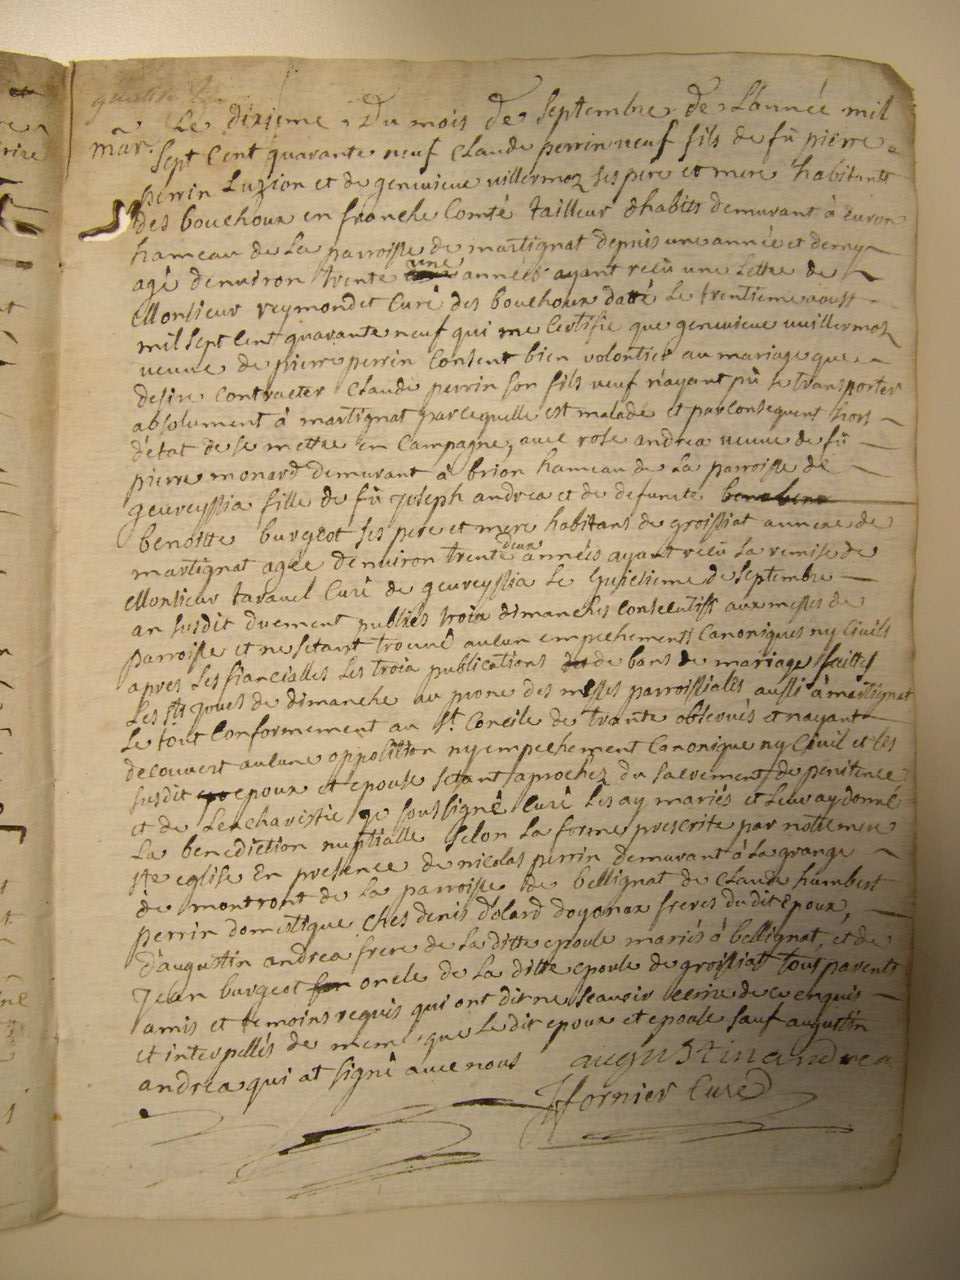 Le dixieme du mois de septembre de L'année mil
mar. sept cent quarante neuf claude perrin veuf fils de fû pierre
perrin Luzion et de genevieve villermoz ses pere et mere habitants
des bouchoux en franche Comté tailleur d'habits demurant à
hameau de La parroisse de martignat depuis une année et demy
agé d'environ trente une années ayant reçû une Lettre de
Monsieur reymondet Curé des bouchoux datté Le trentieme aoust
mil sept cent quarante neuf qui me Certifie que genevieve vuillermoz
veuve de pierre perrin Consent bien volontier au mariage que
desire Contracter Claude perrin son fils veuf n'ayant pû se transporter
absolument à martignat parcequelle est malade et par consequent hors
d'état de se mettre en Campagne, avec rose andrea veuve de fû
pierre monard demurant à brion hameau de La parroisse de
geuveyssia fille de fû joseph andrea et de defunte
benoitte burgeot ses pere et mere habitans de groissiat annexe de
martignat agée d'environ trente deux années ayant reçû La remise de
Monsieur tavavel Curé de geuveyssia Le de septembre
an susdit duement publiés trois dimanches consecutifs aux messes de
parroisse et ne setant trouvé aucun empechements Canoniques ny Civils
apres Les fiancialles Les trois publications de bans de mariage faittes
Les sts jours de dimanche au prone des messes parroissiales aussi à martignat
Le tout Conformement au st. Concile de trante observés et nayant
decouvert aucune opposition ny empechement Canonique ny Civil et les
susdit epoux et epouse setant aprochez du sacrement de penitence
et de Leucharistie je soussigné Curé Les ay mariés et Leur ay donné
La benediction nuptialle selon La forme prescrite par notte mere
ste eglise En presence de nicolas perrin demurant à La grange
de montront de La parroisse de bellignat de Claude humbert
perrin domestique ches denis d'olard doyonax freres du dit Epoux,
d'augustin andrea frere de La ditte epouse mariés à bellignat, et de
Jean burgeot oncle de La ditte epouse de groissiat tous parents
amis et temoins requis qui ont dit ne scavoir ecrire de ce enquis
et interpellés de meme que Le dit epoux et epouse sauf augustin
andrea qui at signé avec nous augustin andrea
fornier Curé